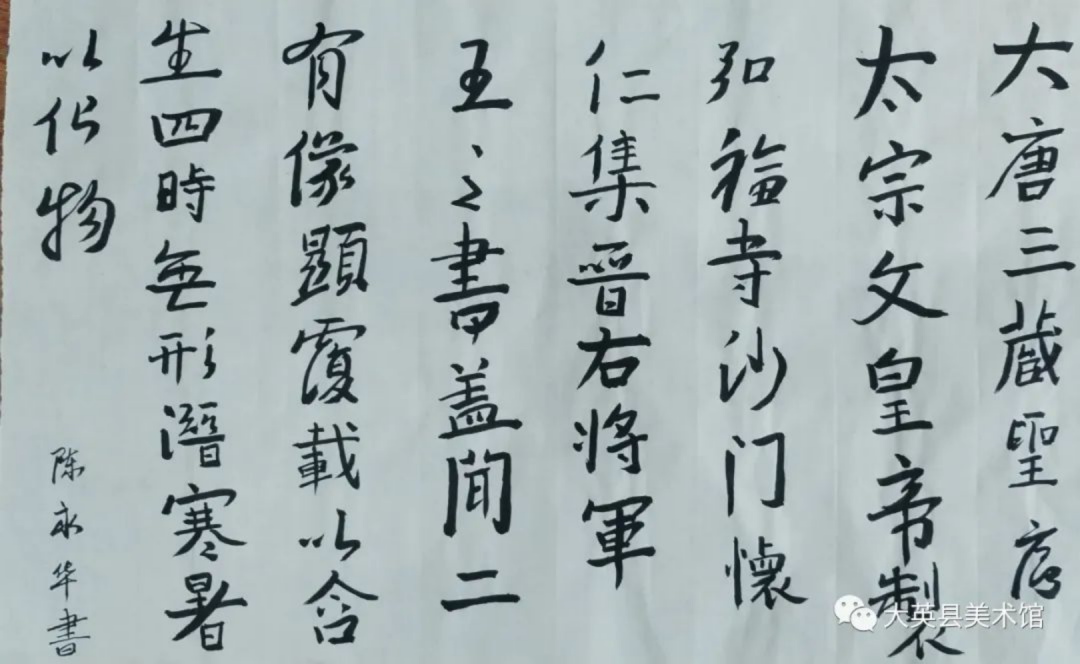 大唐三藏聖序
太宗文皇帝製
弘福寺沙门懷
仁集晋右将軍
王之書盖聞二
有像顯覆載以含
生四時無形潛寒暑
以化物
陈永华書
大英县美术馆